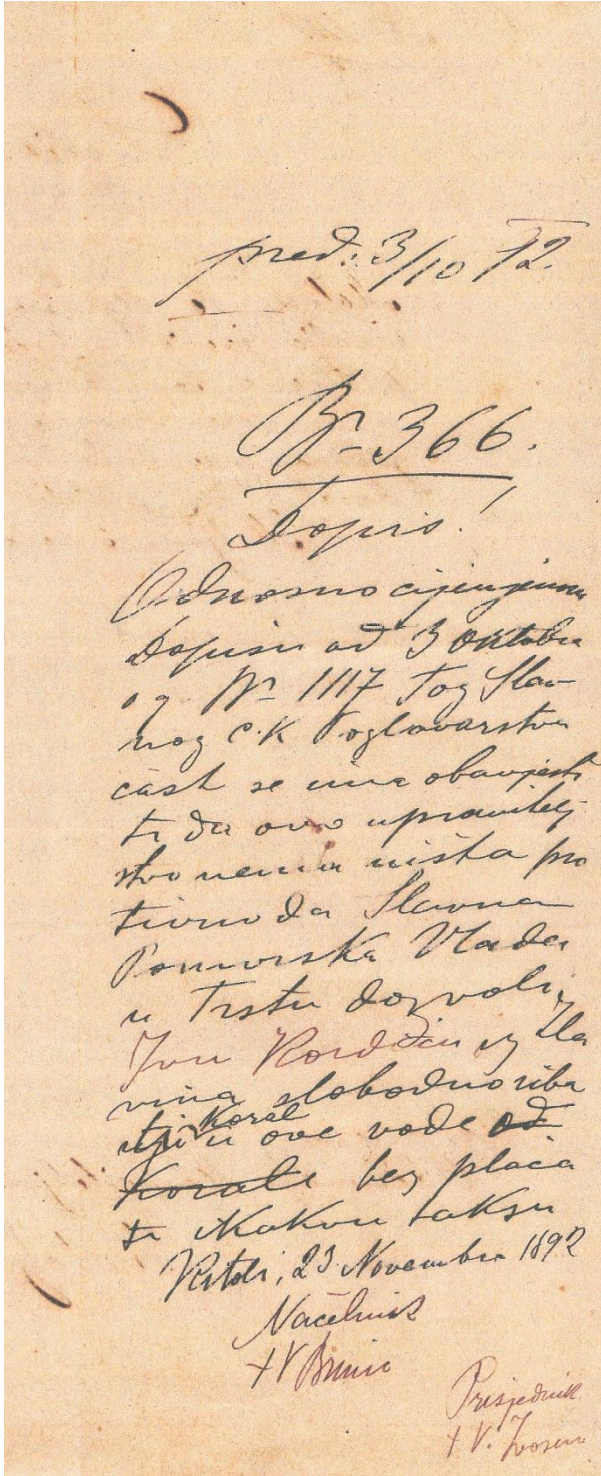 pred: 3/10 92.
Br 366.
Dopis!
Odnosno cijenjenom
dopisu od 3 oktobra
og Nr 1117 Tog Slav-
nog C.K Poglavarstva
čast se ima obavjesti
ti da ovo upravitelj
stvo nema ništa pro
tivno da Slavna
Pomorska Vlada
u Trstu dozvoli
Ivu iz Zla
rina slobodno riba
ti koral
u ove vode od
korale bez plaća
ti ikakvu taksu
23 Novembra 1892
Načelnik
+ V
Prisjednik
+ V.